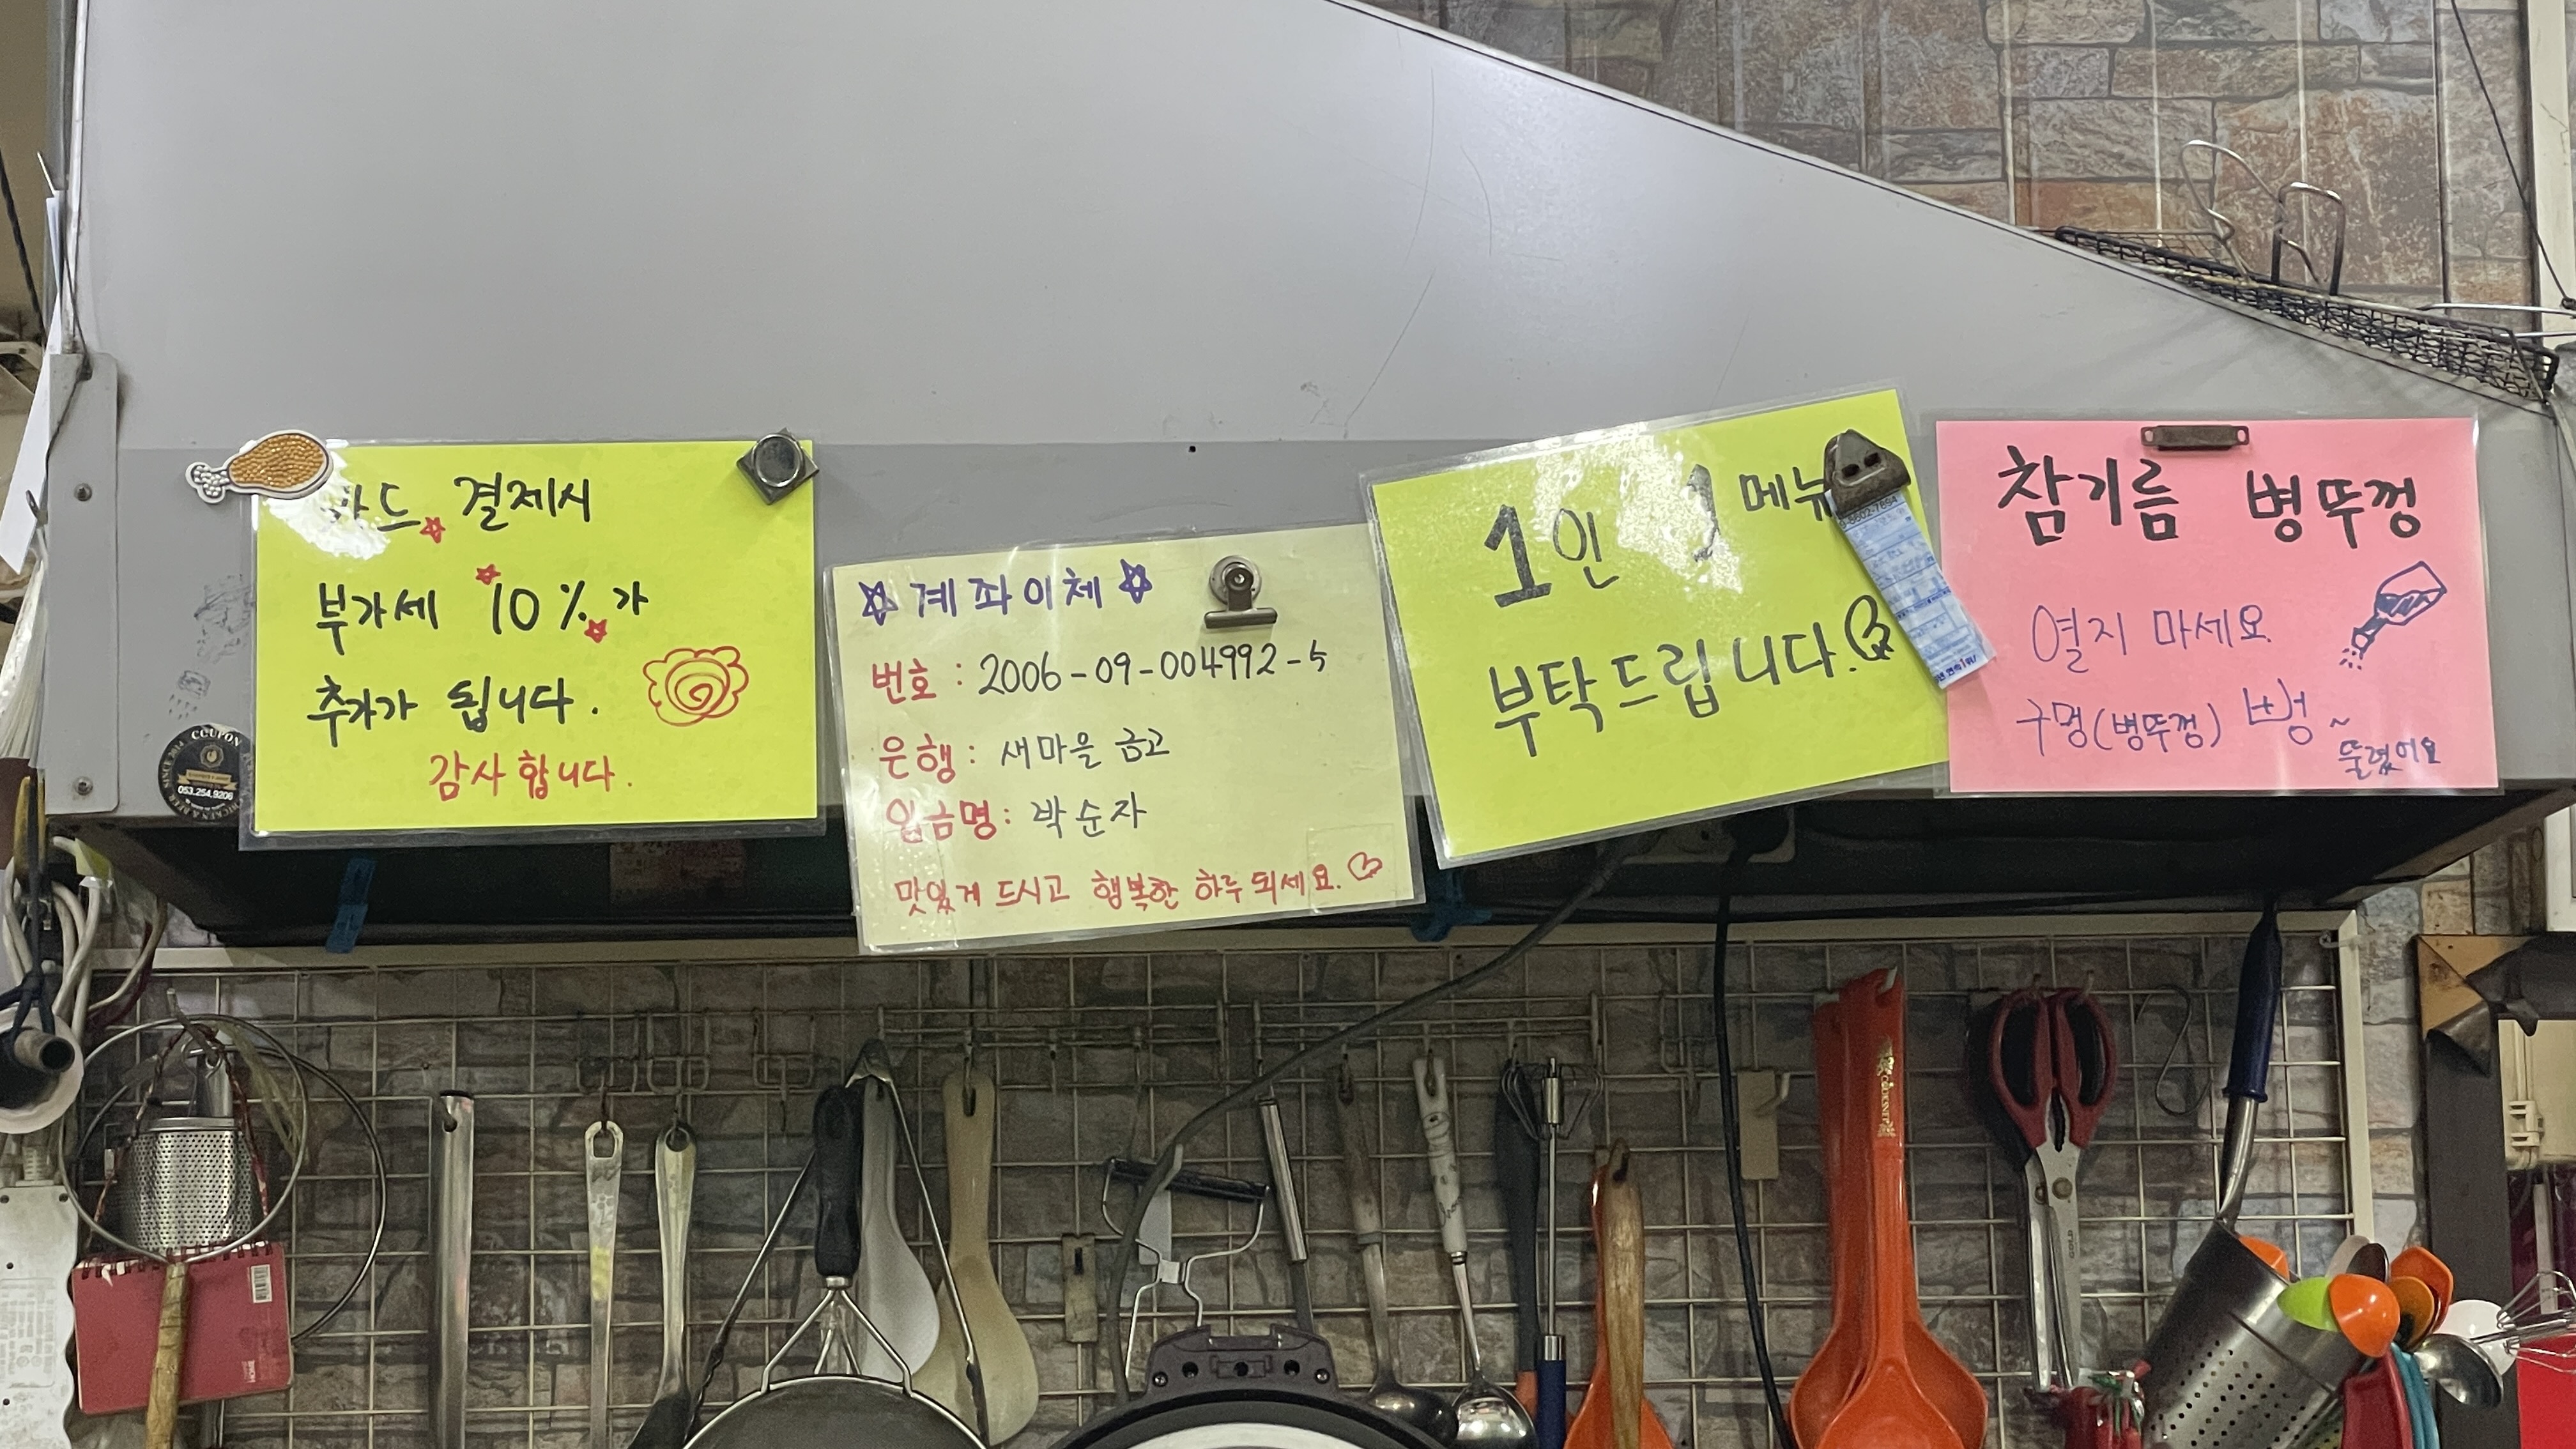 카드 결제시
부가세 10%가
추가가 됩니다.
감사합니다.
COUPON
SINCE 2014
053.254.9206
계좌이체
번호 : 2006-09-004992-5
은행 : 새마을 금고
입금명 : 박순자
맛있게 드시고 행복한 하루 되세요.
1인 1 메뉴
부탁드립니다.
참기름 병뚜껑
열지 마세요
구멍(병뚜껑) 뻥~
뚫렸어요